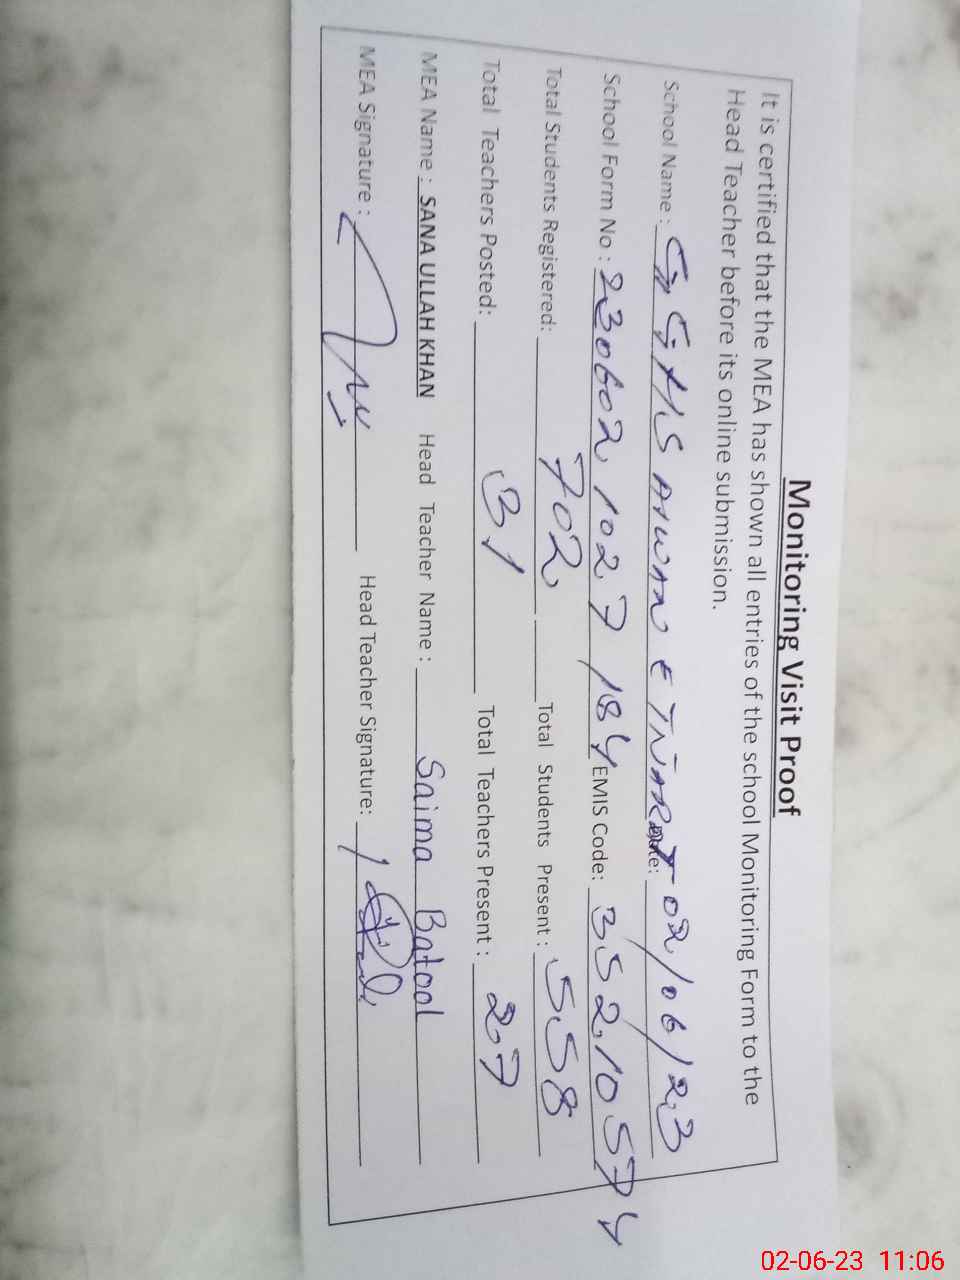 Monitoring Visit Proof
It is certified that the MEA has shown all entries of the school Monitoring Form to the
Head Teacher before its online submission.
School Name : GGHS AIWAN E TIJARAT Date: 02/06/23
School Form No : 230602 1027 184 EMIS Code: 35210574
Total Students Registered: 702 Total Students Present : 558
Total Teachers Posted: 31 Total Teachers Present : 27
MEA Name : SANA ULLAH KHAN Head Teacher Name : Saima Batool
MEA Signature : Head Teacher Signature:
02-06-23 11:06